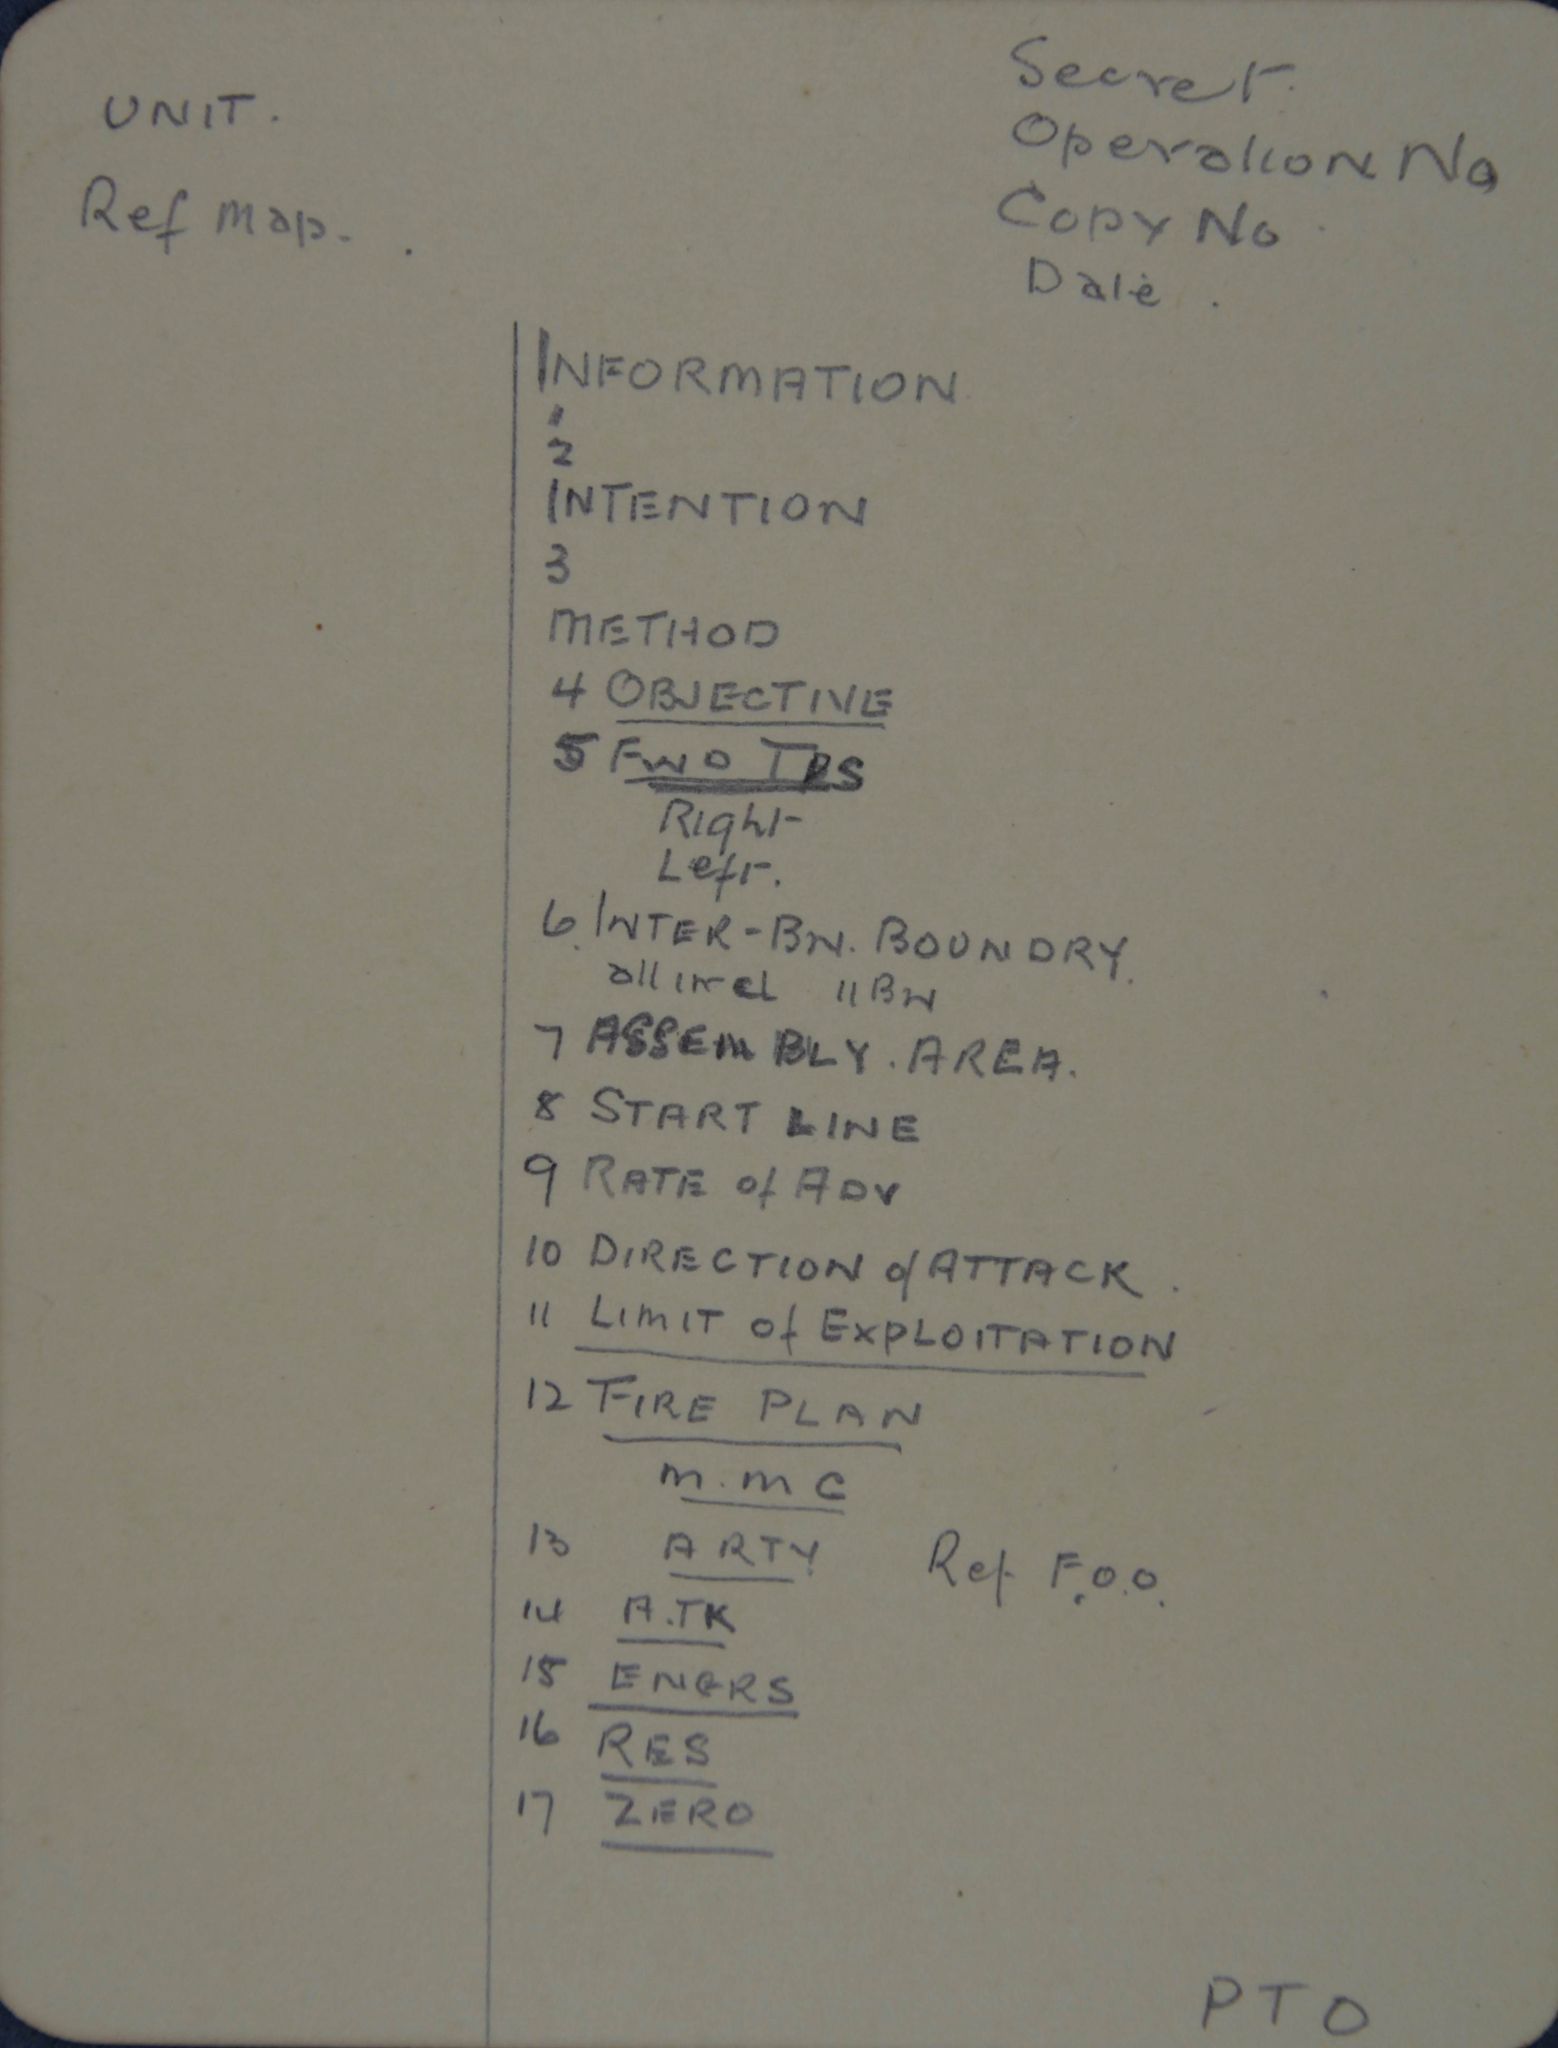 UNIT.
Ref Map.
Secret
Operation No
Copy No
Date
INFORMATION
1
2
INTENTION
3
METHOD
4 OBJECTIVE
5 FWD TPS
Right
Left.
6. INTER-BN. BOUNDRY.
all incl 11 BN
7 ASSEMBLY. AREA.
8 START LINE
9 RATE of ADV
10 DIRECTION of ATTACK.
11 LIMIT of EXPLOITATION
12 FIRE PLAN
M.M G
13 ARTY Ref F.O.O.
14 A.TK
15 ENGRS
16 RES
17 ZERO
PTO